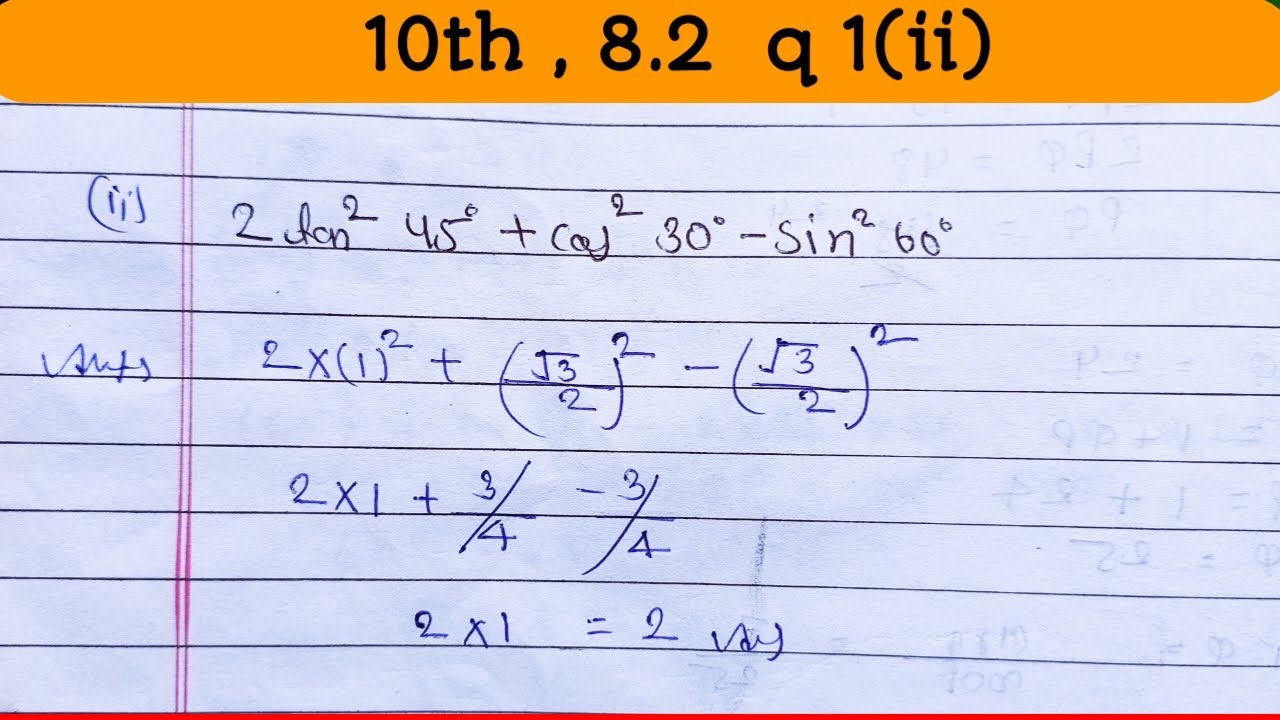 10th , 8.2 q 1(ii)
(ii) 2 tan² 45° + cos² 30° - sin² 60°
Ans 2×(1)² + (√3/2)² - (√3/2)²
2×1 + 3/4 - 3/4
2×1 = 2 Ans